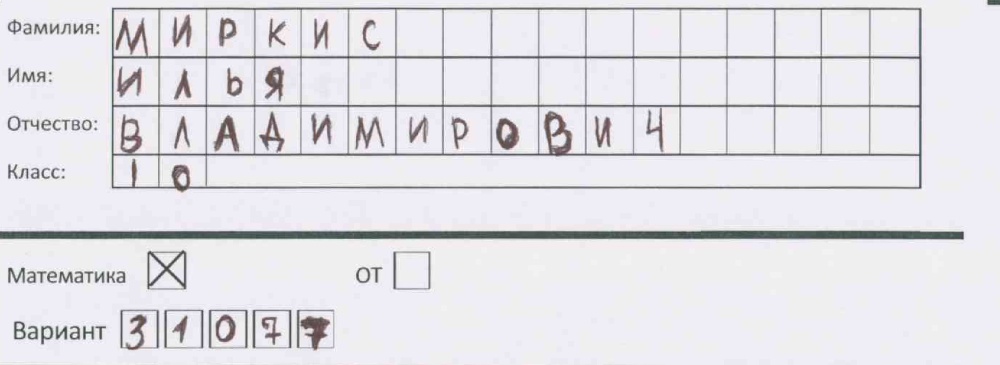 Фамилия: МИРКИС
Имя: ИЛЬЯ
Отчество: ВЛАДИМИРОВИЧ
Класс: 10
Математика ОТ
Вариант 31077